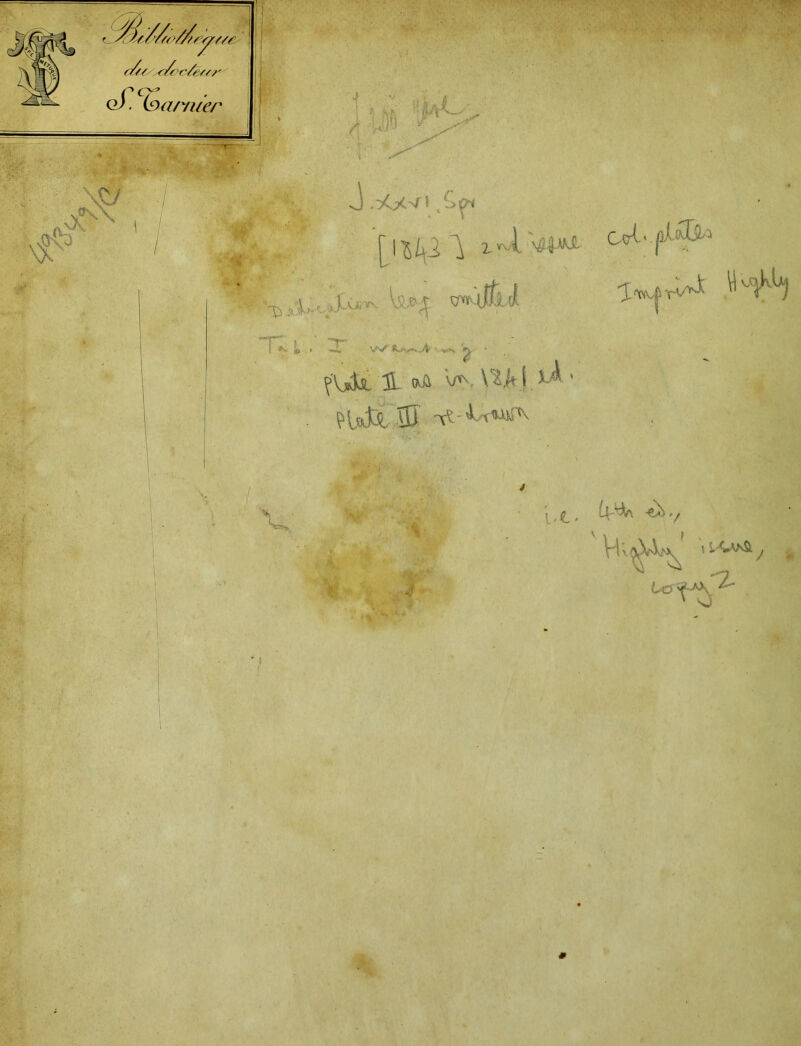 Bibliothèque
du docteur
S. Garnier
49349/C
J.xxvi.
[1843] 2nd issue col. plates
Dedication leaf omitted Imprint Highly
Tab. I wanting.
Plate II as in 1841 ed.
Plate III re-drawn
i.e. 4th ed.,
'Highly' issue,
copy 2